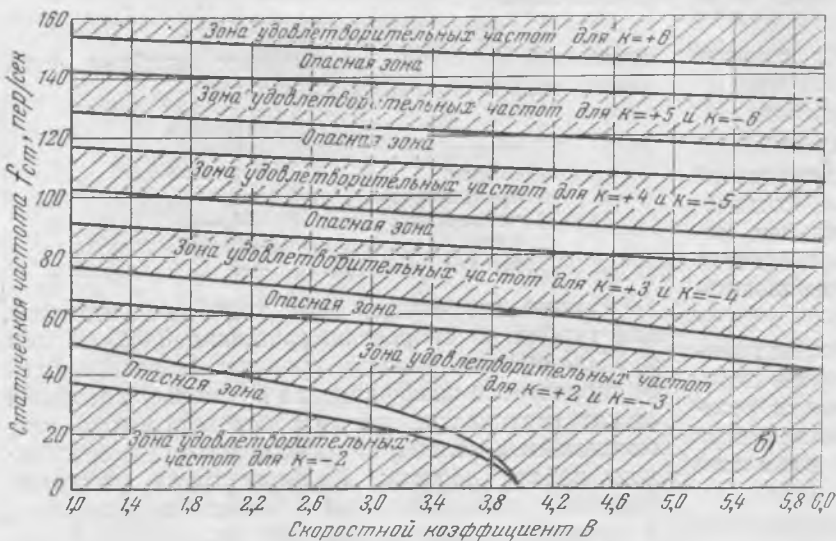 160
140
120
100
80
60
40
20
0
Статическая частота fст, пер/сек
Зона удовлетворительных частот для к=+6
Опасная зона
Зона удовлетворительных частот для к=+5 и к=-6
Опасная зона
Зона удовлетворительных частот для к=+4 и к=-5
Опасная зона
Зона удовлетворительных частот для к=+3 и к=-4
Опасная зона
Зона удовлетворительных частот
для к=+2 и к=-3
Опасная зона
Зона удовлетворительных
частот для к=-2
б)
1,0 1,8 2,2 2,6 3,0 3,4 3,8 4,2 4,6 5,0 5,4 5,8 6,0
Скоростной коэффициент В